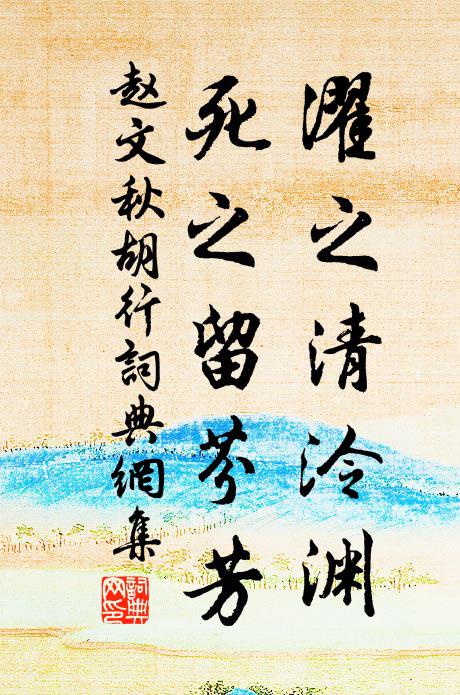 濯之清泠渊
死之留芬芳
赵文秋胡行詞典網集
詞典網印